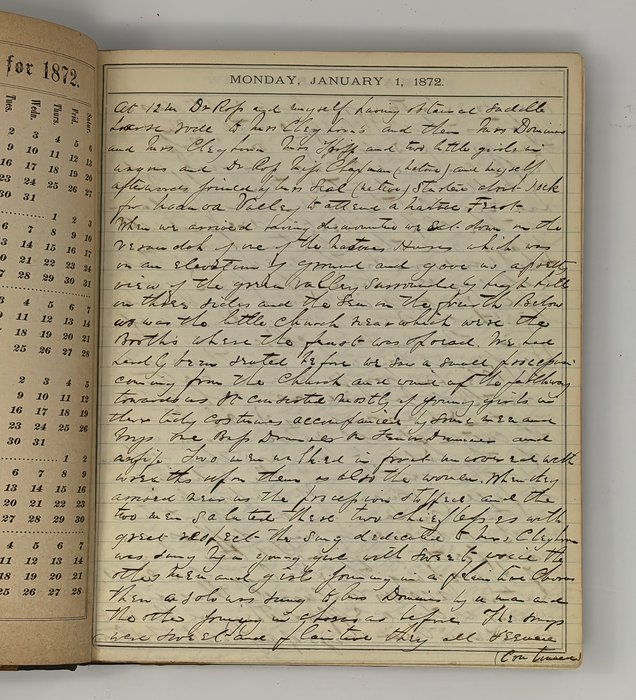 for 1872.
Tues. Wedn. Thurs. Frid. Satur.
2 3 4 5 6
9 10 11 12 13
16 17 18 19 20
23 24 25 26 27
30 31
1 2 3
6 7 8 9 10
13 14 15 16 17
20 21 22 23 24
27 28 29
MONDAY, JANUARY 1, 1872.
At 12 m Dr Ross and myself having obtained saddle
horses rode to Mrs Cleghorn's and then Mrs Dominis
and Mrs Cleghorn Mrs and two little girls in
wagons and Dr Ross Miss Chapman (native) and myself
afterwards joined by Mrs (native) started about 1 o'clock
for Valley to attend a native Feast
When we arrived having dismounted we sat down on the
verandah of one of the natives Houses which was
on an elevation of ground and gave us a pretty
view of the green valley surrounded by high hills
on three sides and the Sea on the fourth Below
us was the little church near which were the
Booths where the feast was spread. We had
hardly been seated before we saw a small procession
coming from the Church and wind up the pathway
towards us It consisted mostly of young girls in
their tidy costumes accompanied by some men and
boys one Dominis and
wife Two men walked in front uncovered with
wreaths upon them as also the women. When they
arrived near us the procession stopped and the
two men saluted these two chieflesses with
great respect the song dedicated to Mrs Cleghorn
was sung by a young girl with sweet voice the
other men and girls joining in a plaintive Chorus
then a solo was sung to Mrs Dominis by a man and
the other joining in chorus as before The songs
were sweet and plaintive they all
(Continued)